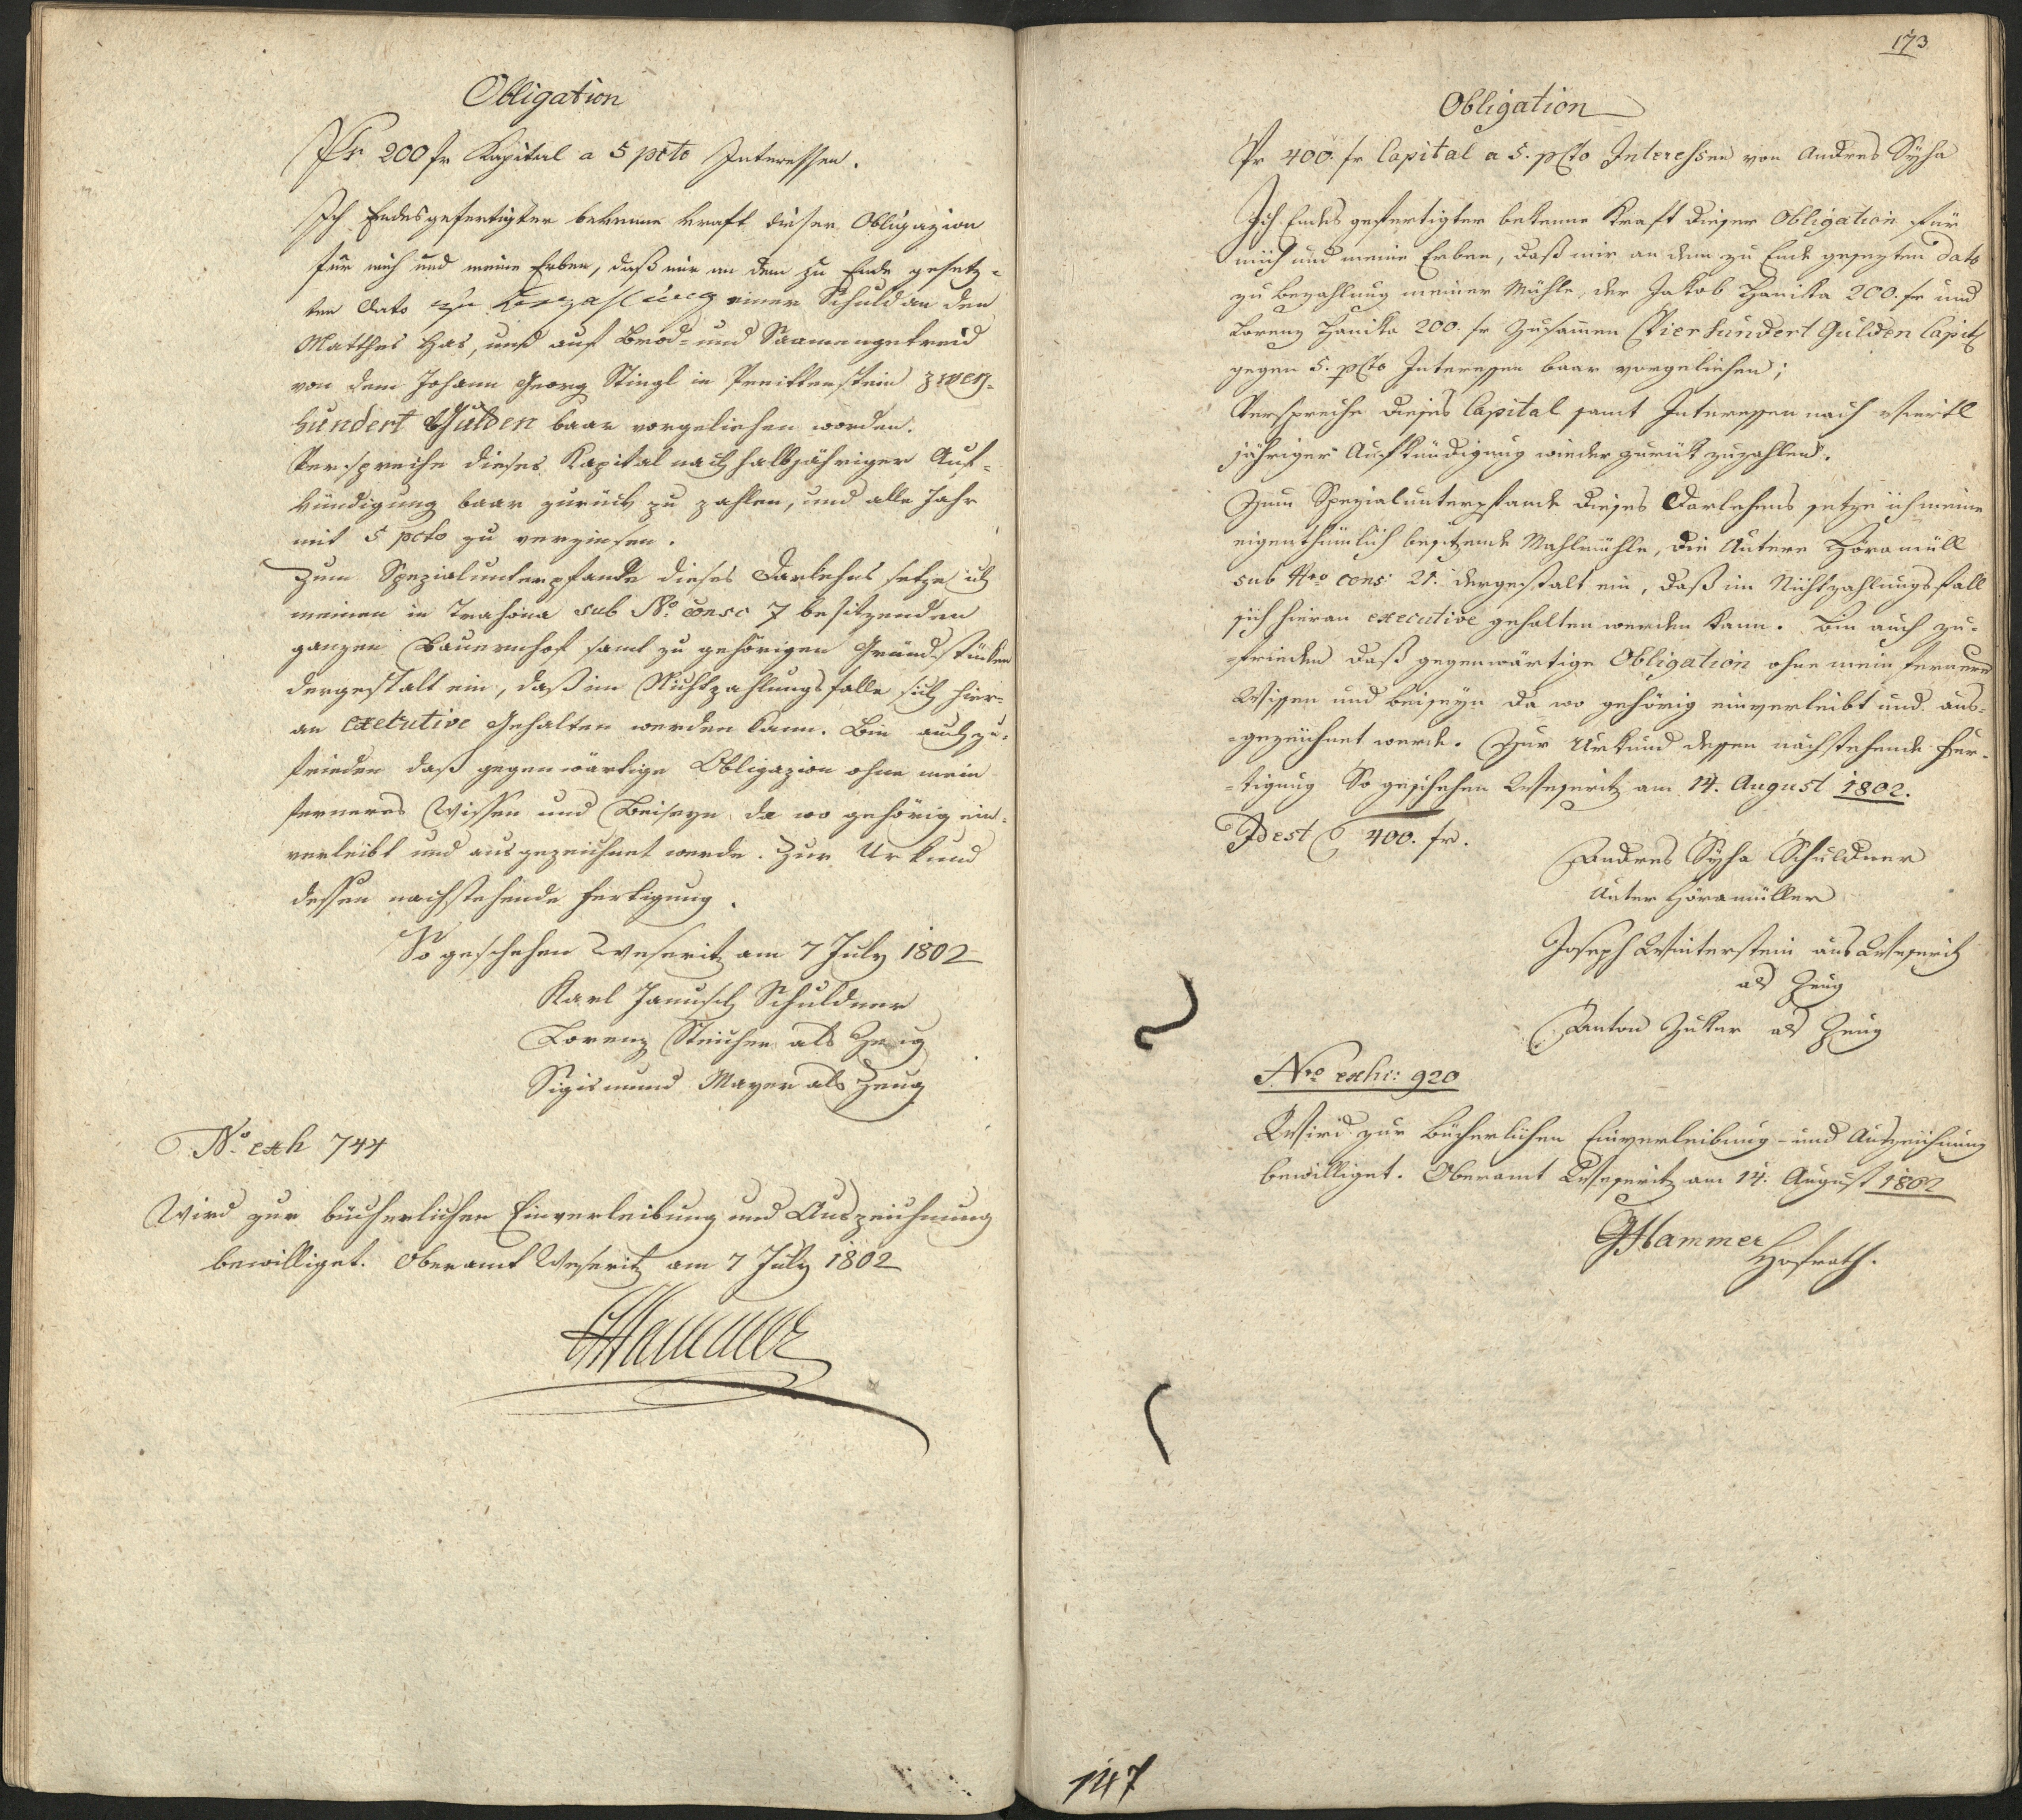 Obligation
Pr 200 fr Kapital a 5 pcto Interessen.
Ich Endesgefertigter bekenne kraft dieser Obligazion
für mich und meine Erben, daß mir an dem zu Ende gesetz-
ten Dato zur Bezahlung einer Schuld an den
Matthes Has, und auf Brod- und Saamengetreid
von dem Johann Georg Stingl in zwey-
hundert Gulden baar vorgeliehen worden.
Verspreche dieses Kapital nach halbjähriger Auf-
kündigung baar zurück zu zahlen, und alle Jahr
mit 5 pcto zu verzinsen.
Zum Spezialunterpfande dieses Darlehns setze ich
meinen in Trahona sub No. consc 7 besitzenden
ganzen Bauernhof samt zu gehörigen Grundstücken
dergestalt ein, daß im Nichtzahlungsfalle sich hier-
an executive gehalten werden kann. Bin auch zu-
frieden daß gegenwärtige Obligazion ohne mein
ferneres Wissen und Beiseyn da wo gehörig ein-
verleibt und ausgezeichnet werde. Zur Urkund
dessen nachstehende Fertigung.
So geschehen Weseritz am 7 July 1802
Karl Janusch Schuldner
Lorenz als Zeug
Sigismund Mayer als Zeug
No. exh 744
Wird zur bücherlichen Einverleibung und Auszeichnung
bewilliget. Oberamt Weseritz am 7 July 1802
Hammer
173
Obligation
Pr 400. fr Capital a 5. pcto Interessen von Andres Syha
Ich Endes gefertigter bekenne Kraft dieser Obligation für
mich und meine Erben, daß mir an dem zu Ende gesezten dato
zu Bezahlung meiner Mühle, der Jakob Hanika 200. fr und
Lorenz Hanika 200. fr Zusammen Vierhundert Gulden Capitl
gegen 5. pcto Interessen baar vorgeliehen;
Verspreche dieses Capital samt Interessen nach viertl
jähriger Aufkündigung wieder zurük zuzahlen.
Zum Spezialunterpfande dieses Darlehens setze ich meine
eigenthümlich besitzende Mahlmühle, die Untere Höramüll
sub Nro cons: 21. dergestalt ein, daß im Nichtzahlungsfall
sich hieran executive gehalten werden kann. Bin auch zu-
-frieden daß gegenwärtige Obligation ohne mein ferneres
Wissen und Beiseyn da wo gehörig einverleibt und aus-
-gezeichnet werde. Zur Urkund dessen nachstehende Fer-
-tigung So geschehen Weseritz am 14. August 1802.
Idest 400. fr.
Andres Syha Schuldner
Unter Höramüller
Joseph Winterstein aus Weseritz
als Zeug
Anton Zuker als Zeug
Nro exhi: 920
Wird zur Bücherlichen Einverleibung- und Auszeichnung
bewilliget. Oberamt Weseritz am 14. August 1802
Hammer
Hofrath.
147